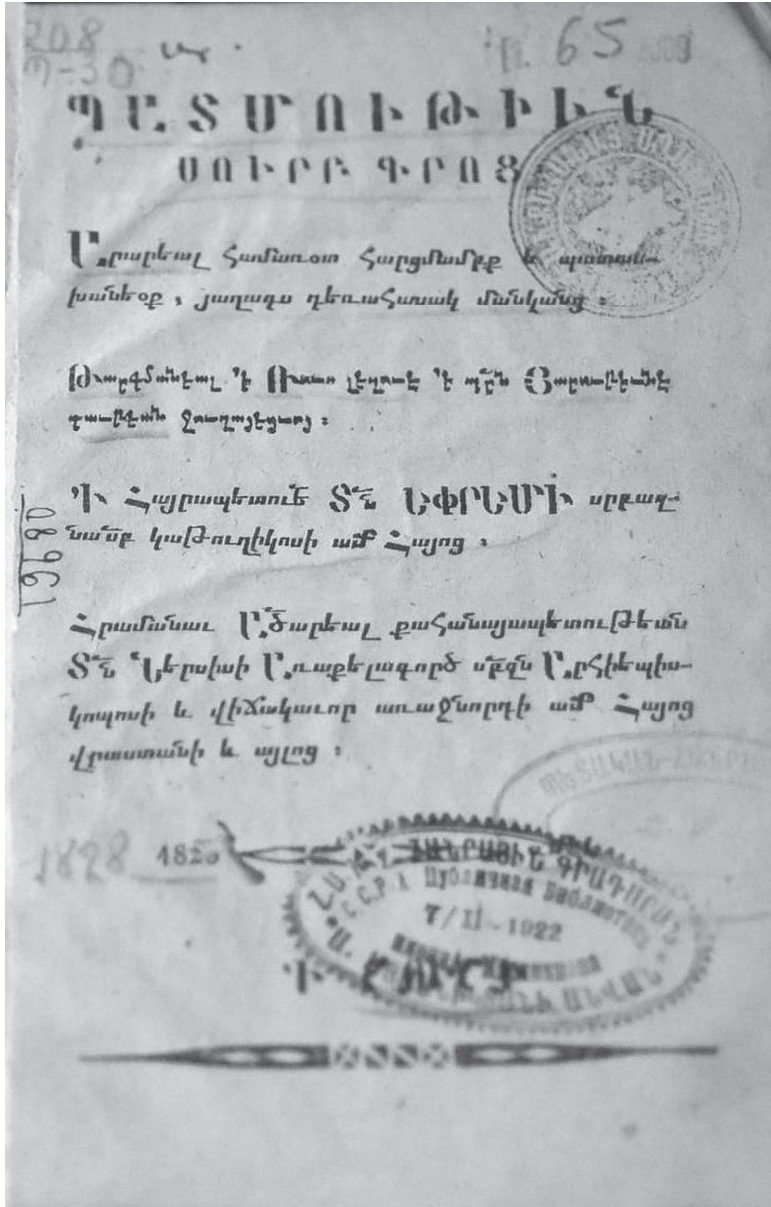 208
65
Պ-30
ՊԱՏՄՈՒԹԻՒՆ
ՍՈՒՐԲ ԳՐՈՑ
Արարեալ Համառօտ Հարցմամբք և պատաս-
խանեօք , յաղագս դեռահասակ մանկանց ։
Թարգմանեալ ՚ի Ռուսս լեզուէ ՚ի պրն
Ջուղայեցւոյ ։
՚Ի Հայրապետութե Տն ԵՓՐԵՄԻ սրբազ-
նասբ կաթուղիկոսի ամ Հայոց ։
19680
Հրամանաւ Արծարեալ քահանայապետութեան
Տն Ներսիսի Առաքելագործ սրբզն Արհիեպիս-
կոպոսի և վիճակաւոր առաջնորդի ամ Հայոց
վրաստանի և այլոց ։
ՊԵՏԱԿԱՆ
1828
ՀԱՆՐԱՅԻՆ ԳՐԱԴԱՐԱՆ
С.С.Р.А Публичная Библиотека
7/II-1922
ԱՆՎԱՆ